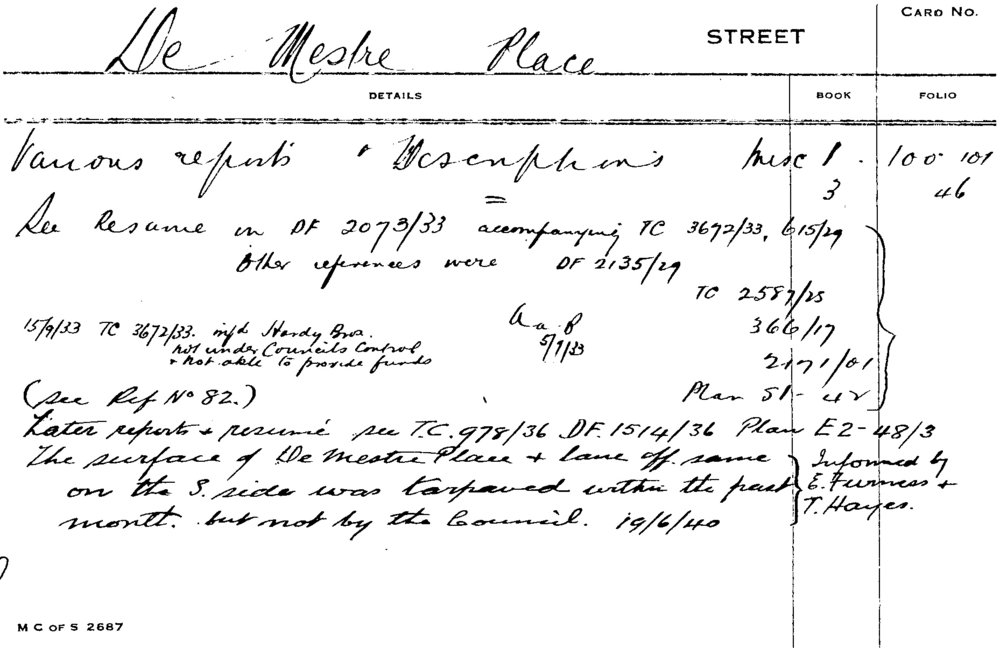 CARD NO.
De Mestre Place STREET
DETAILS BOOK FOLIO
Various reports & Descriptions Misc 1. 100 101
3 46
See Resume in DF 2073/33 accompanying TC 3672/33, 615/29
Other references were DF 2135/29
TC 2587/25
15/9/33 TC 3672/33. infd Hardy Bros. 366/17
not under Councils Control 5/9/33
& not able to provide funds 2171/01
(See Ref No 82.) Plan S1-42
Later reports & resumé see T.C. 978/36 DF. 1514/36 Plan E2-48/3
The surface of De Mestre Place & lane off same Informed by
on the S. side was tarpaved within the past E. Furness &
month. but not by the Council. 19/6/40 T. Hayes.
M C OF S 2687